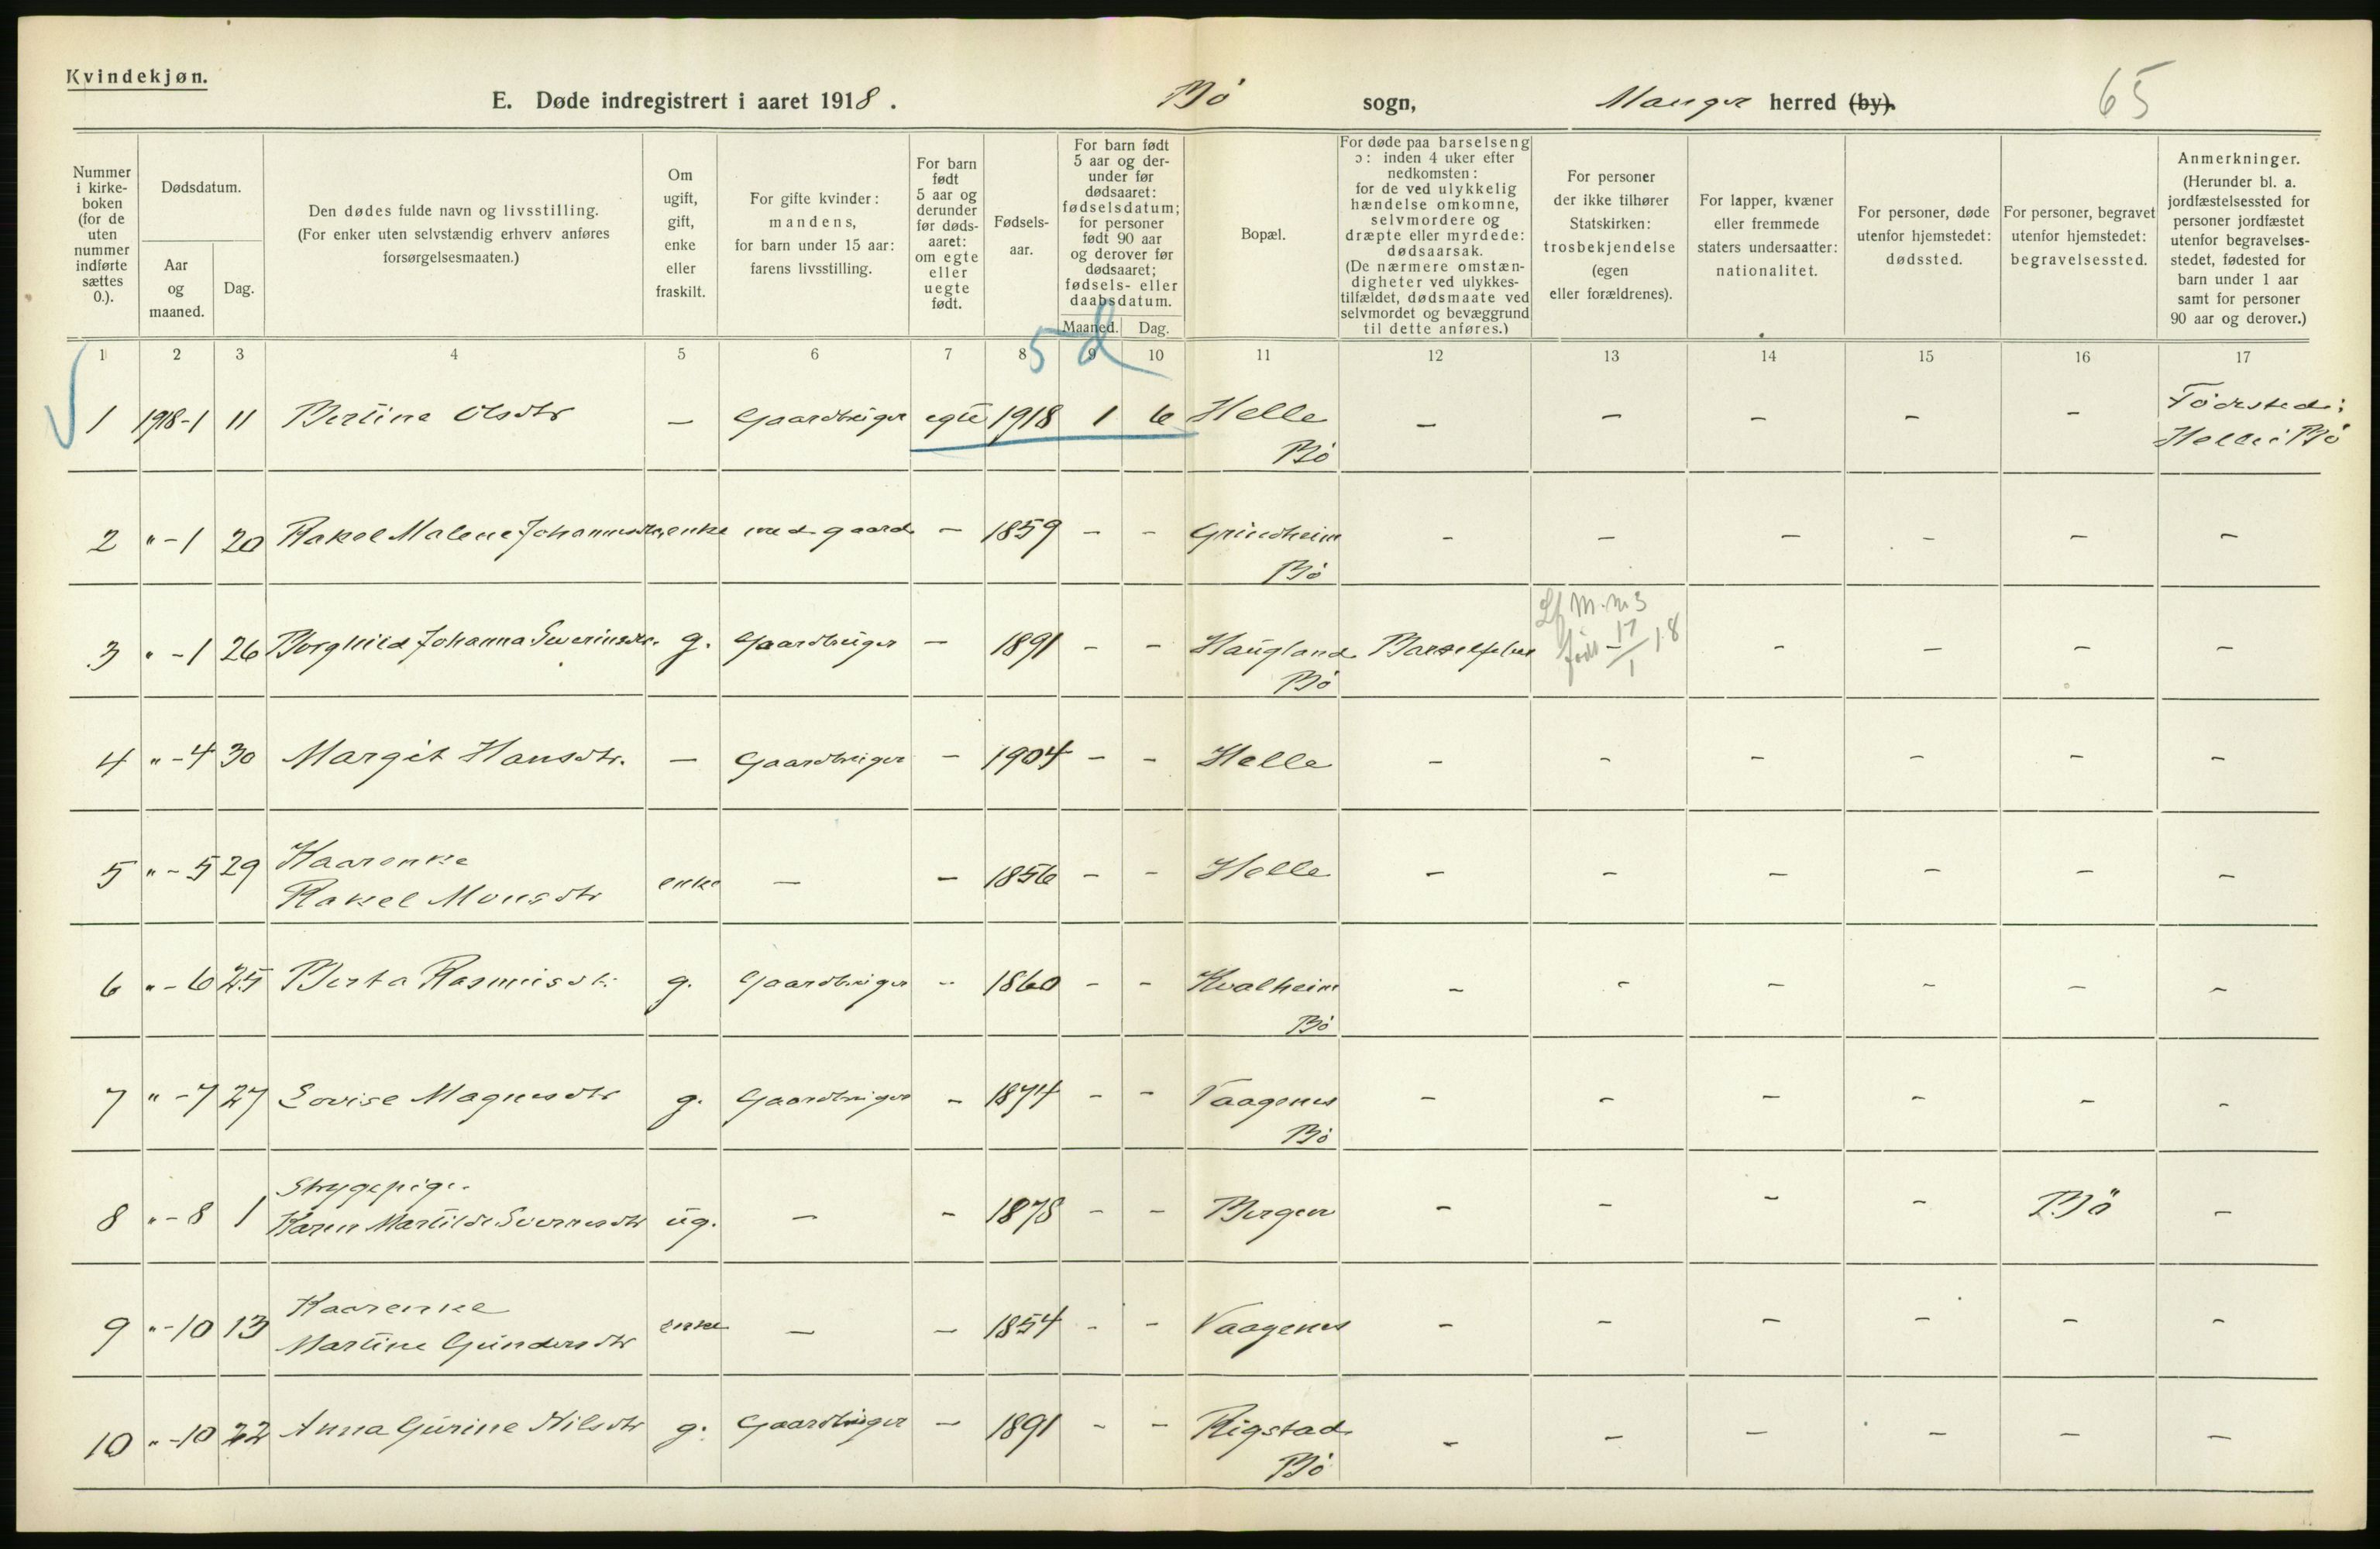 Kvindekjøn.
E. Døde indregistrert i aaret 1918. Bö sogn, Manger herred (by).
65
Nummer i kirkeboken (for de uten nummer indførte sættes 0.).
Dødsdatum.
Aar og maaned.
Dag.
Den dødes fulde navn og livsstilling. (For enker uten selvstændig erhverv anføres forsørgelsesmaaten.)
Om ugift, gift, enke eller fraskilt.
For gifte kvinder: mandens, for barn under 15 aar: farens livsstilling.
For barn født 5 aar og derunder før dødsaaret: om egte eller uegte født.
Fødselsaar.
For barn født 5 aar og derunder før dødsaaret: fødselsdatum; for personer født 90 aar og derover før dødsaaret; fødsels- eller daabsdatum.
Maaned. Dag.
Bopæl.
For døde paa barselseng ɔ: inden 4 uker efter nedkomsten: for de ved ulykkelig hændelse omkomne, selvmordere og dræpte eller myrdede: dødsaarsak. (De nærmere omstændigheter ved ulykkestilfældet, dødsmaate ved selvmordet og bevæggrund til dette anføres.)
For personer der ikke tilhører Statskirken: trosbekjendelse (egen eller forældrenes).
For lapper, kvæner eller fremmede staters undersaatter: nationalitet.
For personer, døde utenfor hjemstedet: dødssted.
For personer, begravet utenfor hjemstedet: begravelsessted.
Anmerkninger. (Herunder bl. a. jordfæstelsessted for personer jordfæstet utenfor begravelsesstedet, fødested for barn under 1 aar samt for personer 90 aar og derover.)
1 2 3 4 5 6 7 8 9 10 11 12 13 14 15 16 17
5 d
1 1918-1 11 Bertine Olsdtr – Gaardbruger egte 1918 1 6 Helle Bö – – – – – Födested: Helle i Bö
2 " -1 20 Rakel Malene Johannesdtr, enke med gaard – 1859 – – Grindheim Bö – – – – – –
3 " -1 26 Borghild Johanna Severinsdtr. g. Gaardbruger – 1891 – – Haugland Bö Barselfeber – – – –
Lf M. nr 3
født 17/1 18
4 " -4 30 Margit Hansdtr. – Gaardbruger – 1904 – – Helle – – – – – –
5 " -5 29 Kaarenke
Rakel Monsdtr enke – – 1856 – – Helle – – – – – –
6 " -6 25 Berta Rasmusdtr. g. Gaardbruger – 1860 – – Kvalheim Bö – – – – – –
7 " -7 27 Lovise Magnusdtr g. Gaardbruger – 1874 – – Vaagenes Bö – – – – – –
8 " -8 1 Strygepige
Karen Martilde Sverresdtr ug. – – 1878 – – Bergen – – – – Bö –
9 " -10 13 Kaarenke
Martine Gundersdtr enke – – 1854 – – Vaagenes – – – – – –
10 " -10 22 Anna Gurine Nilsdtr g. Gaardbruger – 1891 – – Rigstad Bö – – – – – –